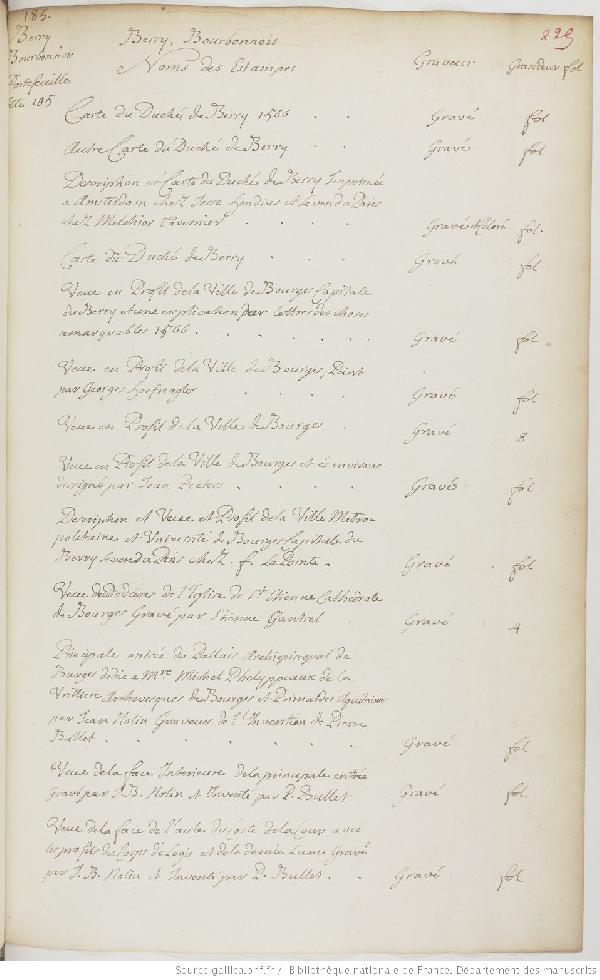 185.
229
Berry
Bourbonnois
Portefeuille
185
Berry, Bourbonnois
Noms des Estampes Graveur Grandeur fol
Carte du Duché de Berry 1566 . . Gravé fol
Autre Carte du Duché de Berry . Gravé fol
Description et Carte du Duché de Berry Imprimée
a Amsterdam chez Josse Hondius et se vend a Paris
chez Melchior Tavernier . . . . Gravé et Coloré fol.
Carte du Duché de Berry . . Gravé fol
Veue en Profil de la Ville de Bourges Capitale
du Berry et une explication par lettres des choses
remarquables 1566 . . . . . Gravé fol
Veue en Profil de la Ville de Bourges, Peint
par Georges Hoefnagle . . . . Gravé fol
Veue en Profil de la Ville de Bourges . Gravé 8
Veue en Profil de la Ville de Bourges et és environs
designé par Jean Peeters . . . . Gravés fol
Description et Veue et Profil de la Ville Metro-
politaine et Université de Bourges Capitale du
Berry se vend a Paris chez F. La Pointe . Gravé . fol
Veue de derrieres de l'Eglise de St Etienne Cathédrale
de Bourges Gravé par Etienne Gantrel Gravé 4
Principale entrée du Pallais Archiepiscopal de
Bourges dédié a Mre Michel Phelyppeaux de la
Vrilliere Archevesque de Bourges et Primat des Aquitaines
par Jean Nolin Graveur de l'Invention de Pierre
Bullet . . . . . . Gravé fol
Veue de la face Interieure de la principale entrée
Gravé par J. B. Nolin et Inventé par P. Bullet Gravé fol
Veue de la face de l'aisle du Costé de la Cour avec
les profils du Corps de Logis et de la demie Lune Gravé
par J. B. Nolin et Inventé par P. Bullet . . Gravé fol
Source gallica.bnf.fr / Bibliothèque nationale de France. Département des manuscrits